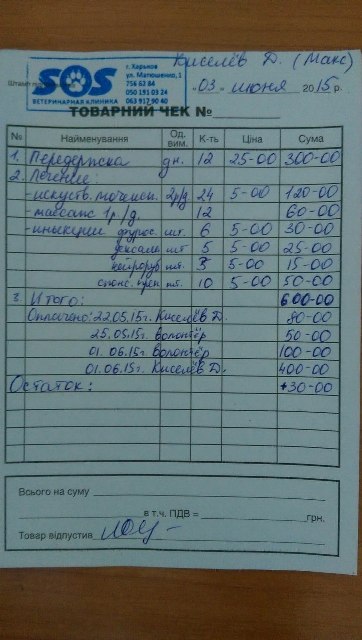 Киселёв Д. (Макс)
SOS
ВЕТЕРИНАРНАЯ КЛИНИКА
г. Харьков
ул. Матюшенко, 1
756 63 84
050 191 03 24
063 917 90 40
Штамп
"03" июня 2015 р.
ТОВАРНИЙ ЧЕК №
№ Найменування Од. вим. К-ть Ціна Сума
1. Передержка дн. 12 25-00 300-00
2. Лечение:
- искуств. мочеисп. 2р/д 24 5-00 120-00
- массаж 1р/д. 12 60-00
- инъекции фурос. шт. 6 5-00 30-00
дексам. шт 5 5-00 25-00
нейроруб. шт. 3 5-00 15-00
шт. 10 5-00 50-00
3. Итого: 600-00
Оплачено: 22.05.15г. Киселёв Д. 80-00
25.05.15г Волонтёр 50-00
01.06.15г Волонтёр 100-00
01.06.15г Киселёв Д. 400-00
Остаток: +30-00
Всього на суму
в т.ч. ПДВ = грн.
Товар відпустив